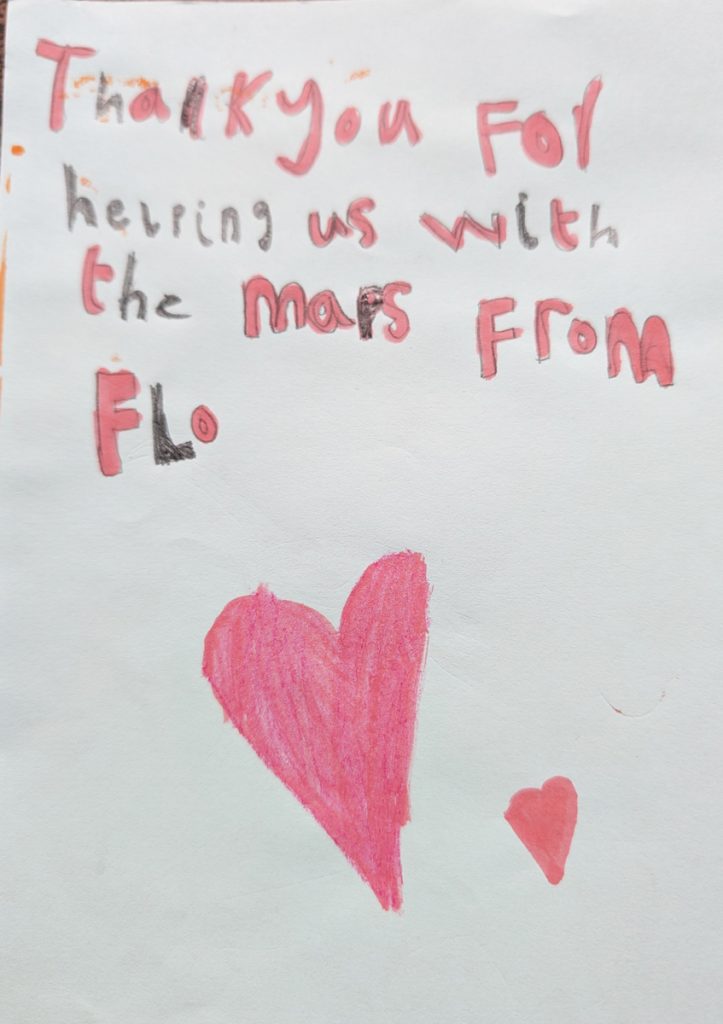 ThalK you For
helping us with
the maps From
FLo